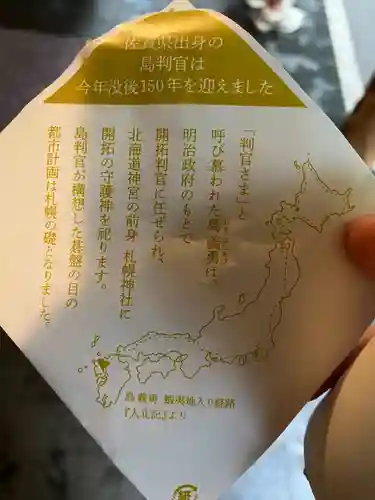 佐賀県出身の
島判官は
今年没後150年を迎えました
「判官さま」と
呼び慕われた島義勇は、
明治政府のもとで
開拓判官に任ぜられ、
北海道神宮の前身 札幌神社に
開拓の守護神を祀ります。
島判官が構想した碁盤の目の
都市計画は札幌の礎となりました。
島義勇 蝦夷地入り経路
『入北記』より
紙